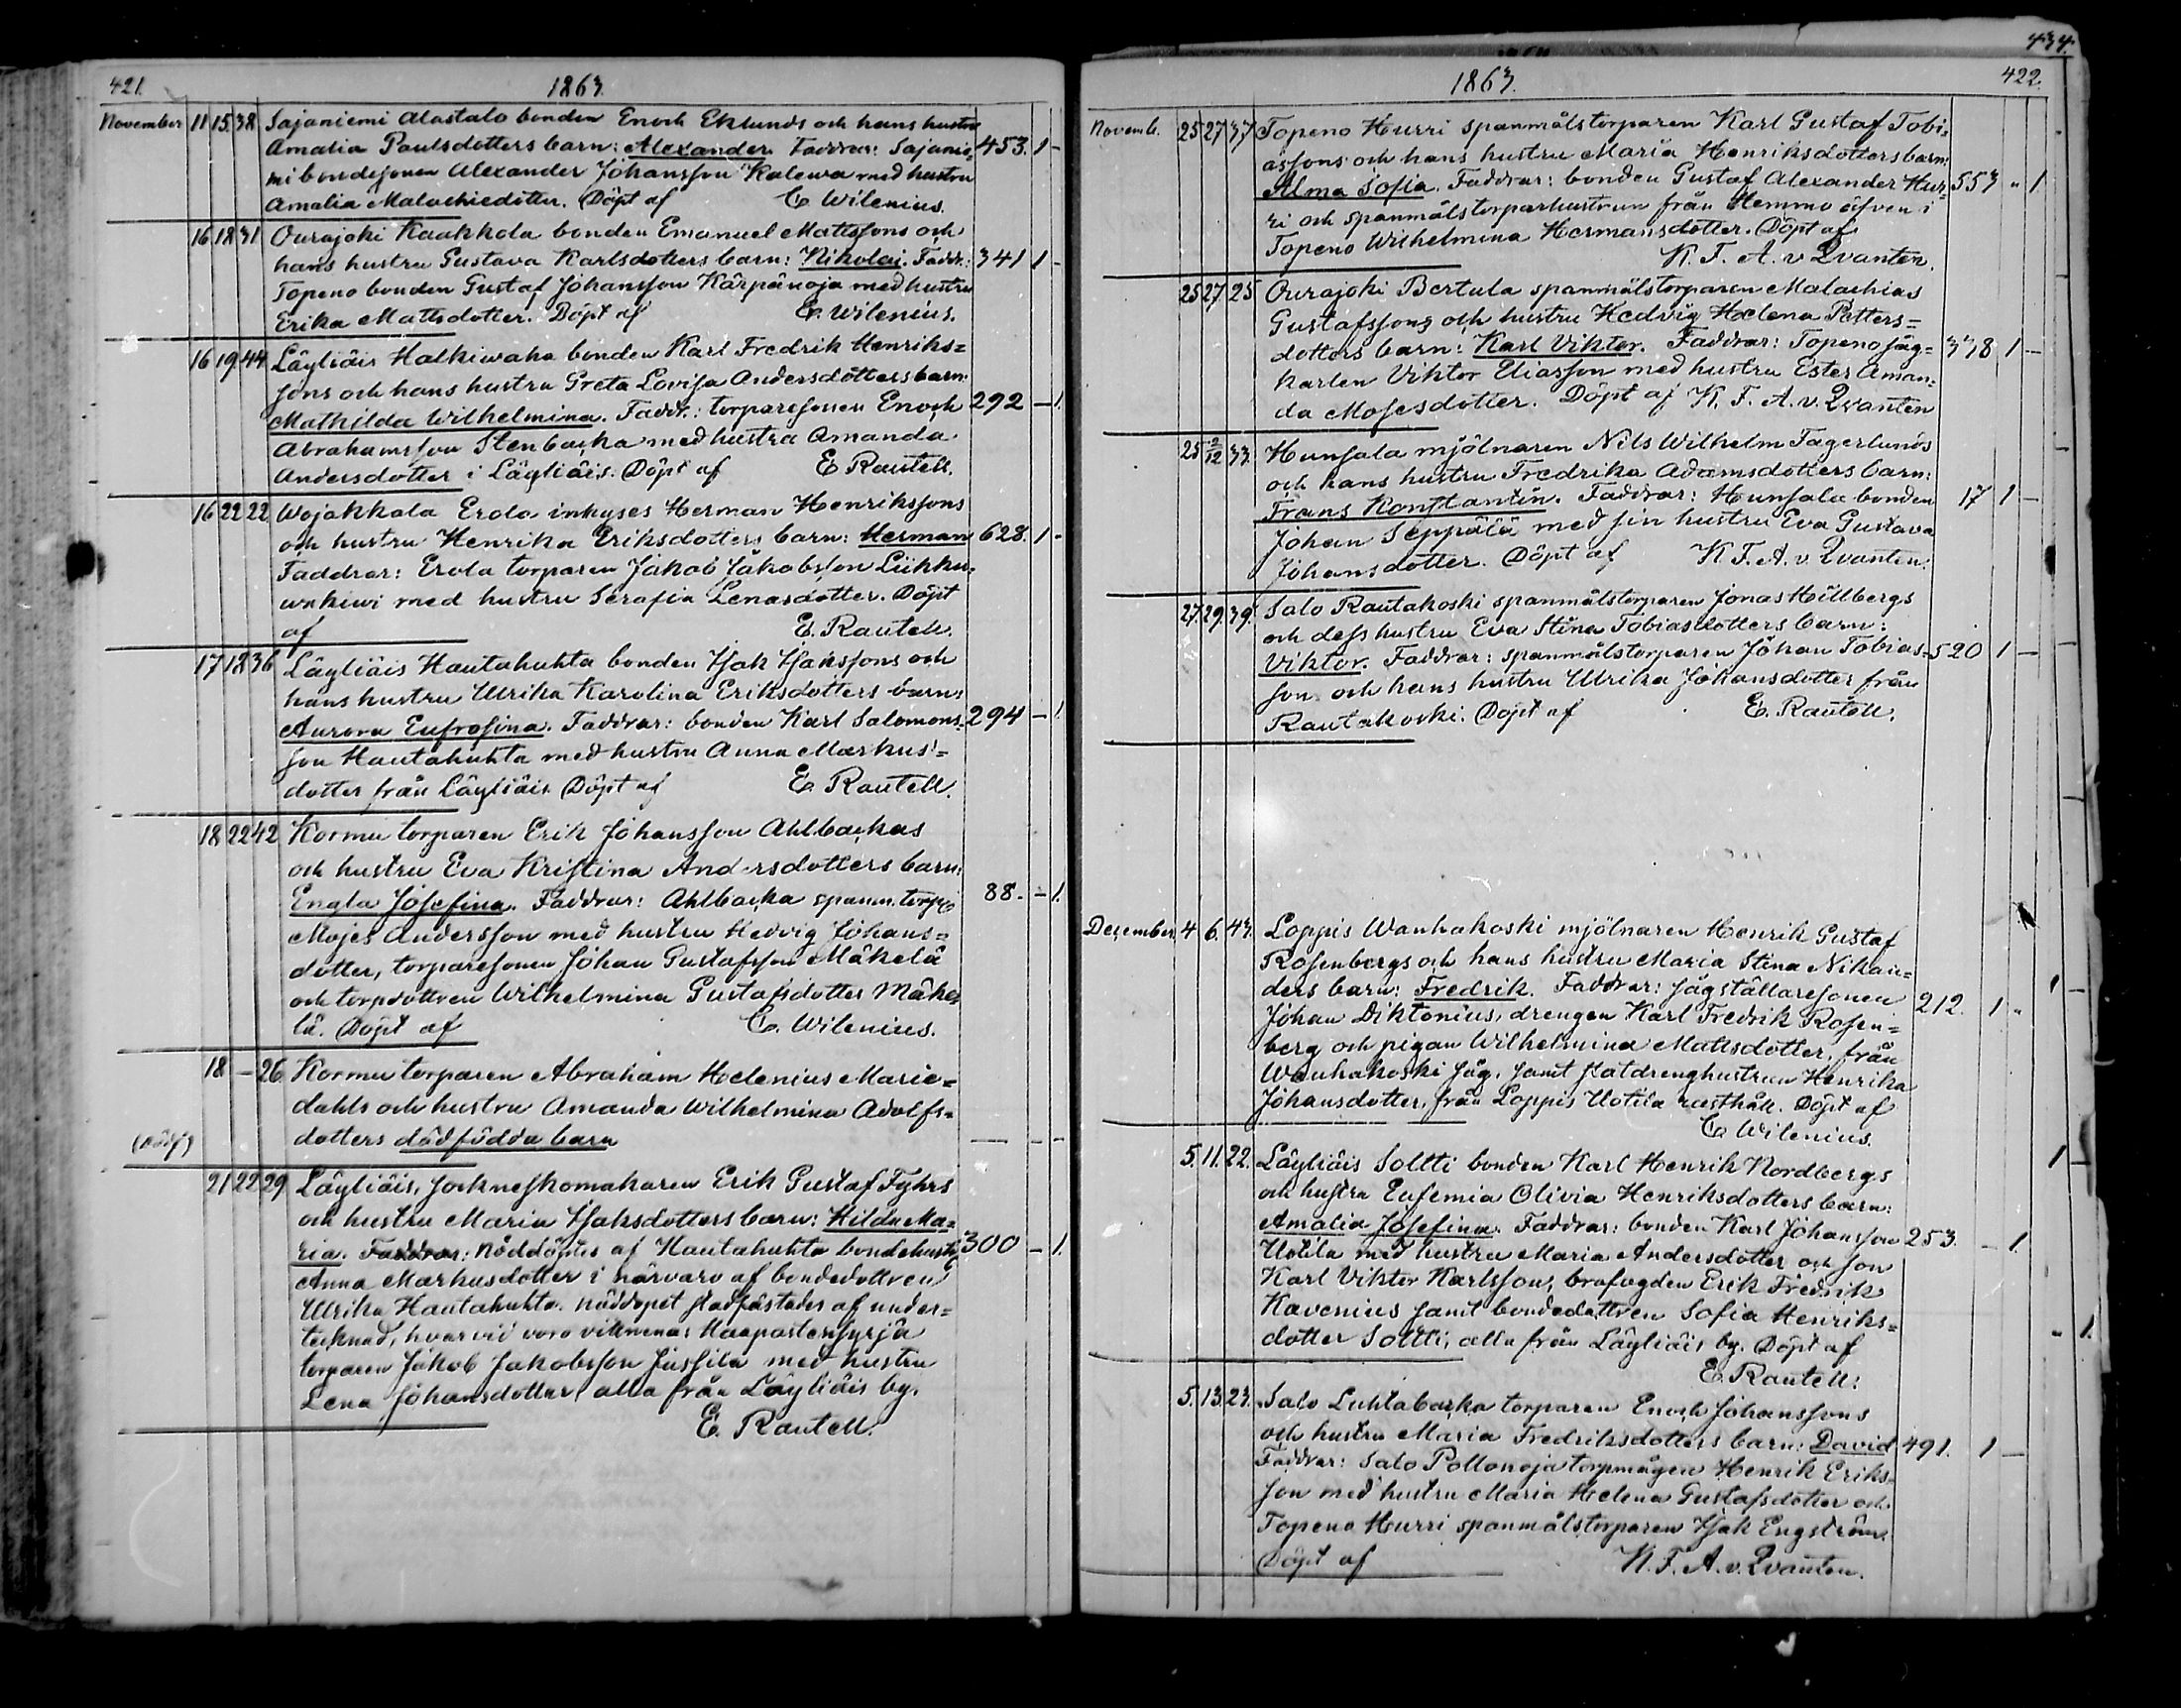 421.
1863.
November 11 15. 38 Sajaniemi Alastalo bonden Enoch Eklunds och hans hustru
Amalia Paulsdotters barn: Alexander. Faddrar: Sajanie= 453. 1 -
mi bondesonen Alexander Johansson Kalewa med hustru
Amalia Malachiedotter. Döpt af C. Wilenius.
16 18 31 Ourajoki Kaakkola bonden Emanuel Mattssons och
hans hustru Gustava Karlsdotters barn: Nikolai. Faddr.: 341 1 -
Topeno bonden Gustaf Johansson Kärpänoja med hustru
Erika Mattsdotter. Döpt af C. Wilenius.
16 19 44 Läyliäis Halkiwaha bonden Karl Fredrik Henriks=
sons och hans hustru Greta Lovisa Andersdotters barn:
Mathilda Wilhelmina. Faddr.: torparesonen Enoch 292 — 1.
Abrahamsson Stenbacka med hustru Amanda
Andersdotter i Läyliäis. Döpt af E Rautell.
16 22 22 Wojakkala Erola inhyses Herman Henrikssons
och hustru Henrika Eriksdotters barn: Herman 628. 1 -
Faddrar: Erola torparen Jakob Jakobsson Liikku=
wakiwi med hustru Serafia Lenasdotter. Döpt
af E. Rautell.
17 18 36 Läyliäis Hautahuhta bonden Isak Isakssons och
hans hustru Ulrika Karolina Eriksdotters barn:
Aurora Eufrosina. Faddrar: bonden Karl Salomons= 294 — 1.
son Hautahuhta med hustru Anna Markus=
dotter från Läyliäis Döpt af E. Rautell.
18 22 42 Kormu torparen Erik Johansson Ahlbackas
och hustru Eva Kristina Andersdotters barn:
Engla Josefina. Faddrar: Ahlbacka spanm. torp. 88. — 1.
Moses Andersson med hustru Hedvig Johans=
dotter, torparesonen Johan Gustafsson Mäkelä
och torpdottren Wilhelmina Gustafsdotter Mäke=
lä. Döpt af C. Wilenius.
18 — 26. Kormu torparen Abraham Helenius Marie=
dahls och hustru Amanda Wilhelmina Adolfs=
(dödf) dotters dödfödda barn — — —
21 22 29 Läyliäis, sockneskomakaren Erik Gustaf Fyhrs
och hustru Maria Isaksdotters barn: Hilda Ma=
ria. Faddrar: Nöddöptes af Hautahuhta bondehustr. 300 — 1.
Anna Markusdotter i närvaro af bondedottren
Ulrika Hautahuhta. Nöddopet stadfästades af under=
tecknad, hvarvid voro vittnena: Haapastensyrjä
torparen Jakob Jakobsson Jussila med hustru
Lena Johansdotter, alla från Läyliäis by.
E. Rautell.
434.
422.
1863.
Novemb. 25 27 37 Topeno Hurri spanmålstorparen Karl Gustaf Tobi=
assons och hans hustru Maria Henriksdotters barn:
Alma Sofia. Faddrar: bonden Gustaf Alexander Hur= 553 „ 1
ri och spanmålstorparhustrun från Hemmo äfven i
Topeno Wilhelmina Hermansdotter. Döpt af
K. F. A. v Qvanten.
25 27 25 Ourajoki Bertula spanmålstorparen Malachias
Gustafssons och hustru Hedvig Helena Petters=
dotters barn: Karl Viktor. Faddrar: Topeno såg= 338 1 —
karlen Viktor Eliasson med hustru Ester Aman=
da Mosesdotter. Döpt af K. F. A. v. Qvanten
25 2/12 33. Hunsala mjölnaren Nils Wilhelm Fagerlunds
och hans hustru Fredrika Adamsdotters barn:
Frans Konstantin. Faddrar: Hunsala bonden 17 1 —
Johan Seppälä med sin hustru Eva Gustava
Johansdotter. Döpt af K F. A. v. Qvanten.
27. 29. 39. Salo Rautakoski spanmålstorparen Jonas Hillbergs
och dess hustru Eva Stina Tobiasdotters barn:
Viktor. Faddrar: spanmålstorparen Johan Tobias= 520 1 —
son och hans hustru Ulrika Johansdotter från
Rautakoski. Döpt af E. Rautell.
December. 4 6. 43. Loppis Wanhakoski mjölnaren Henrik Gustaf
Rosenbergs och hans hustru Maria Stina Nikan=
ders barn: Fredrik. Faddrar: sågställaresonen 212. 1 „
Johan Diktonius, drengen Karl Fredrik Rosen=
berg och pigan Wilhelmina Mattsdotter, från
Wanhakoski såg, samt statdrenghustrun Henrika
Johansdotter, från Loppis Uotila rusthåll. Döpt af
C. Wilenius.
5. 11. 22. Läyliäis Soltti bonden Karl Henrik Nordbergs
och hustru Eufemia Olivia Henriksdotters barn:
Amalia Josefina. Faddrar: bonden Karl Johansson 253. — 1.
Uotila med hustru Maria Andersdotter och son
Karl Viktor Karlsson, brofogden Erik Fredrik
Kavenius samt bondedottren Sofia Henriks=
dotter Soltti, alla från Läyliäis by. Döpt af
E. Rautell.
5. 13. 23. Salo Luhtabacka torparen Enoch Johanssons
och hustru Maria Fredriksdotters barn: David 491. 1 —
Faddrar: Salo Pollonoja torpmågen Henrik Eriks=
son med hustru Maria Helena Gustafsdotter och
Topeno Hurri spanmålstorparen Isak Engström.
Döpt af K. F. A. v. Qvanten.